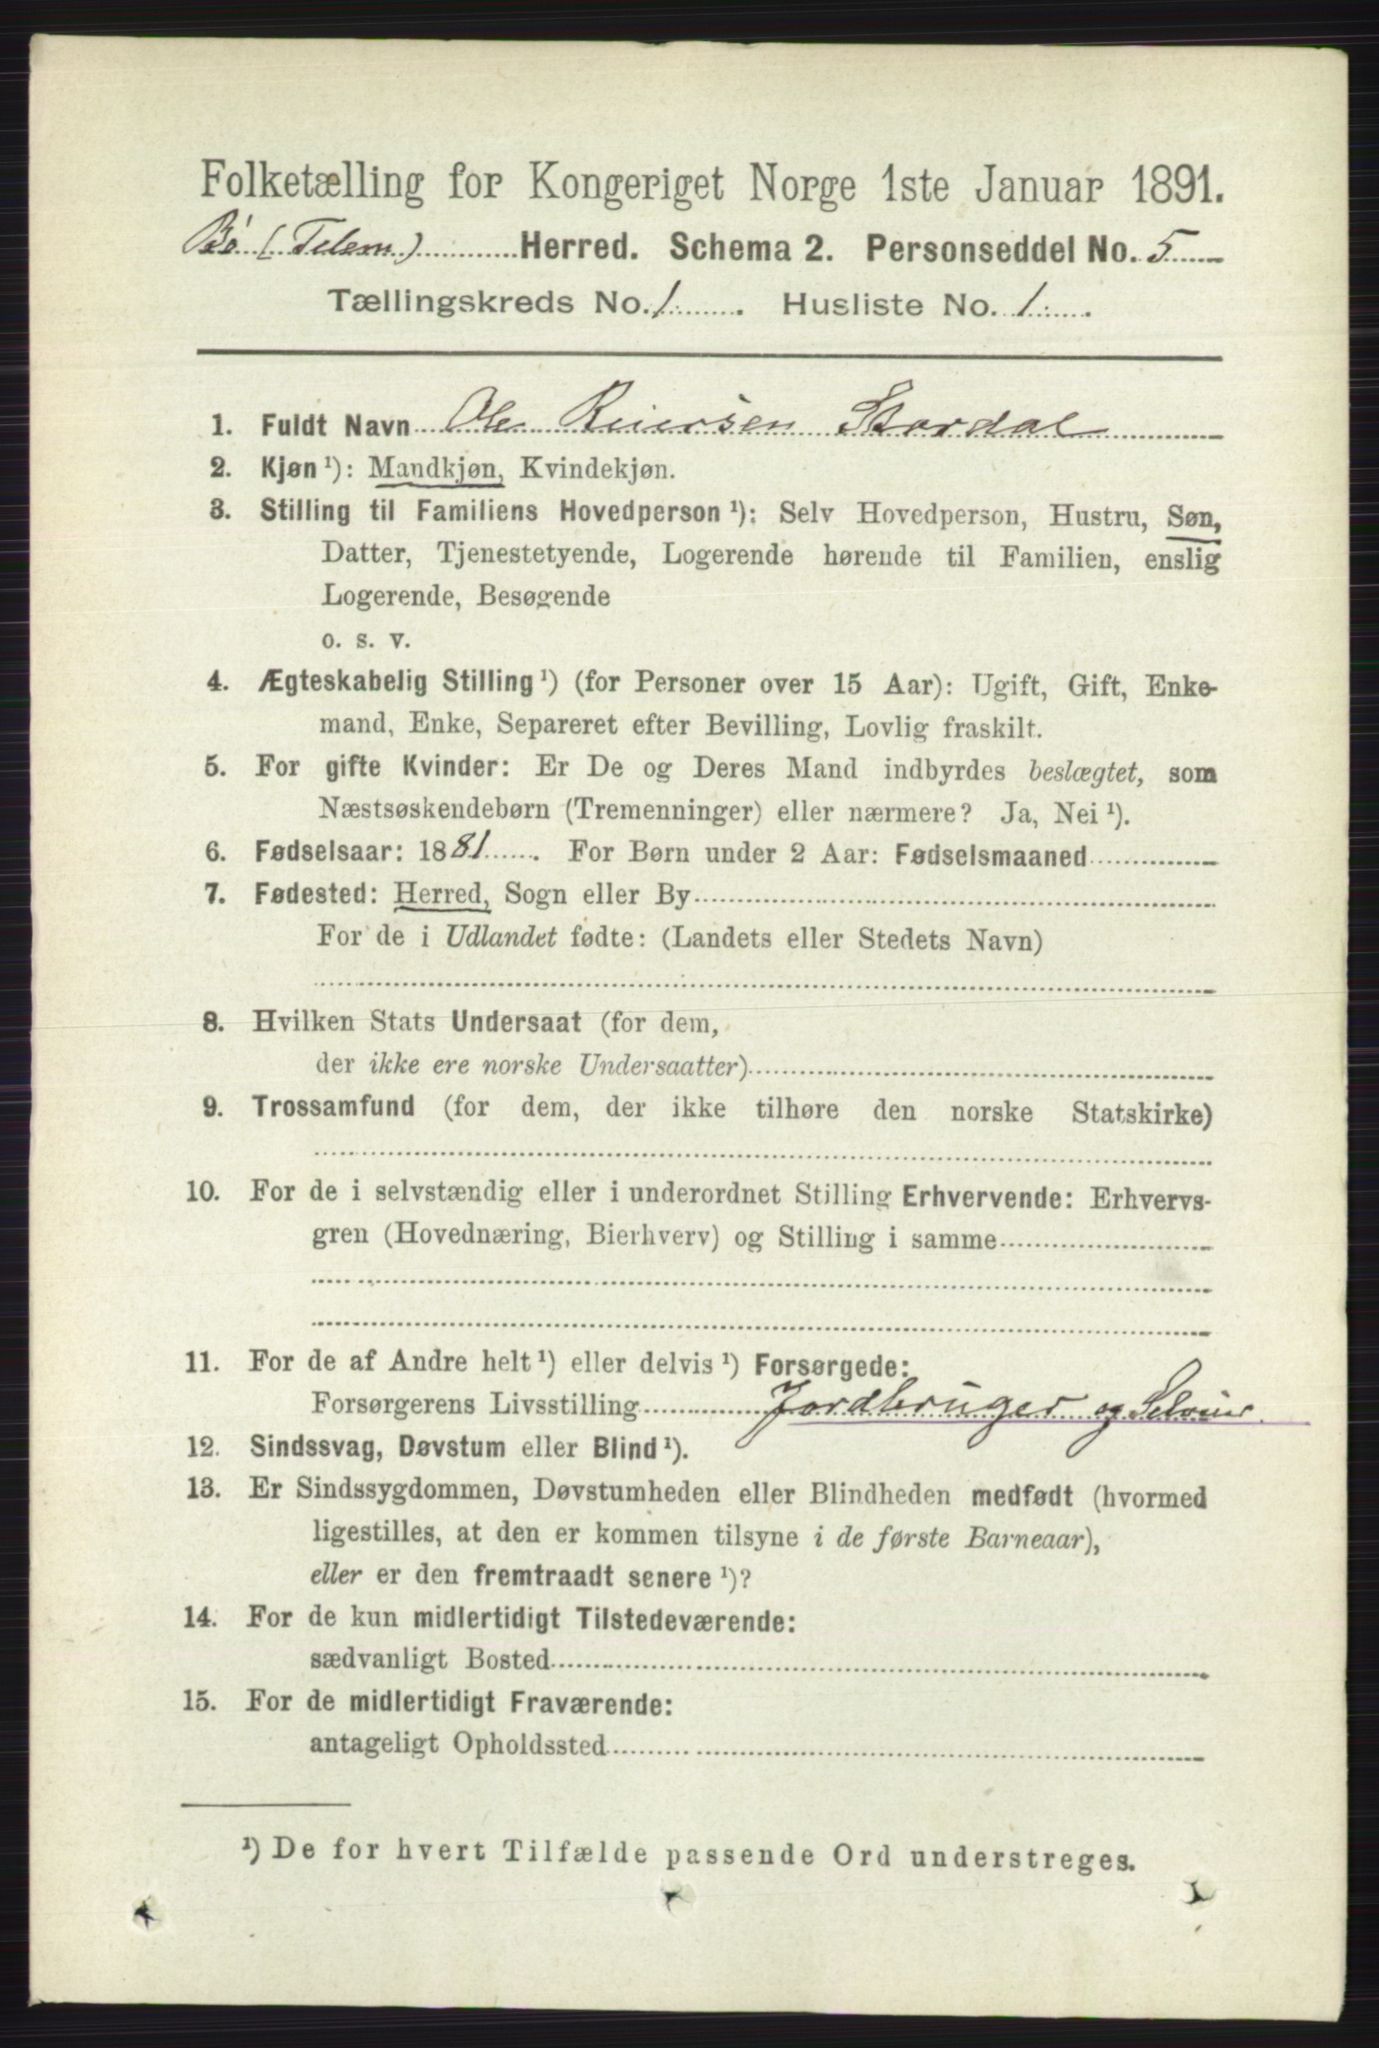 Folketælling for Kongeriget Norge 1ste Januar 1891.
Bø (Telem) Herred. Schema 2. Personseddel No. 5
Tællingskreds No. 1. Husliste No. 1.
1. Fuldt Navn Ole Reiersen Stordal
2. Kjøn ¹): Mandkjøn, Kvindekjøn.
3. Stilling til Familiens Hovedperson ¹): Selv Hovedperson, Hustru, Søn,
Datter, Tjenestetyende, Logerende hørende til Familien, enslig
Logerende, Besøgende
o. s. v.
4. Ægteskabelig Stilling ¹) (for Personer over 15 Aar): Ugift, Gift, Enke-
mand, Enke, Separeret efter Bevilling, Lovlig fraskilt.
5. For gifte Kvinder: Er De og Deres Mand indbyrdes beslægtet, som
Næstsøskendebørn (Tremenninger) eller nærmere? Ja, Nei ¹).
6. Fødselsaar: 1881. For Børn under 2 Aar: Fødselsmaaned
7. Fødested: Herred, Sogn eller By
For de i Udlandet fødte: (Landets eller Stedets Navn)
8. Hvilken Stats Undersaat (for dem,
der ikke ere norske Undersaatter)
9. Trossamfund (for dem, der ikke tilhøre den norske Statskirke)
10. For de i selvstændig eller i underordnet Stilling Erhvervende: Erhvervs-
gren (Hovednæring, Bierhverv) og Stilling i samme
11. For de af Andre helt ¹) eller delvis ¹) Forsørgede:
Forsørgerens Livsstilling Jordbruger og Selveier
12. Sindssvag, Døvstum eller Blind ¹).
13. Er Sindssygdommen, Døvstumheden eller Blindheden medfødt (hvormed
ligestilles, at den er kommen tilsyne i de første Barneaar),
eller er den fremtraadt senere ¹)?
14. For de kun midlertidigt Tilstedeværende:
sædvanligt Bosted
15. For de midlertidigt Fraværende:
antageligt Opholdssted
¹) De for hvert Tilfælde passende Ord understreges.